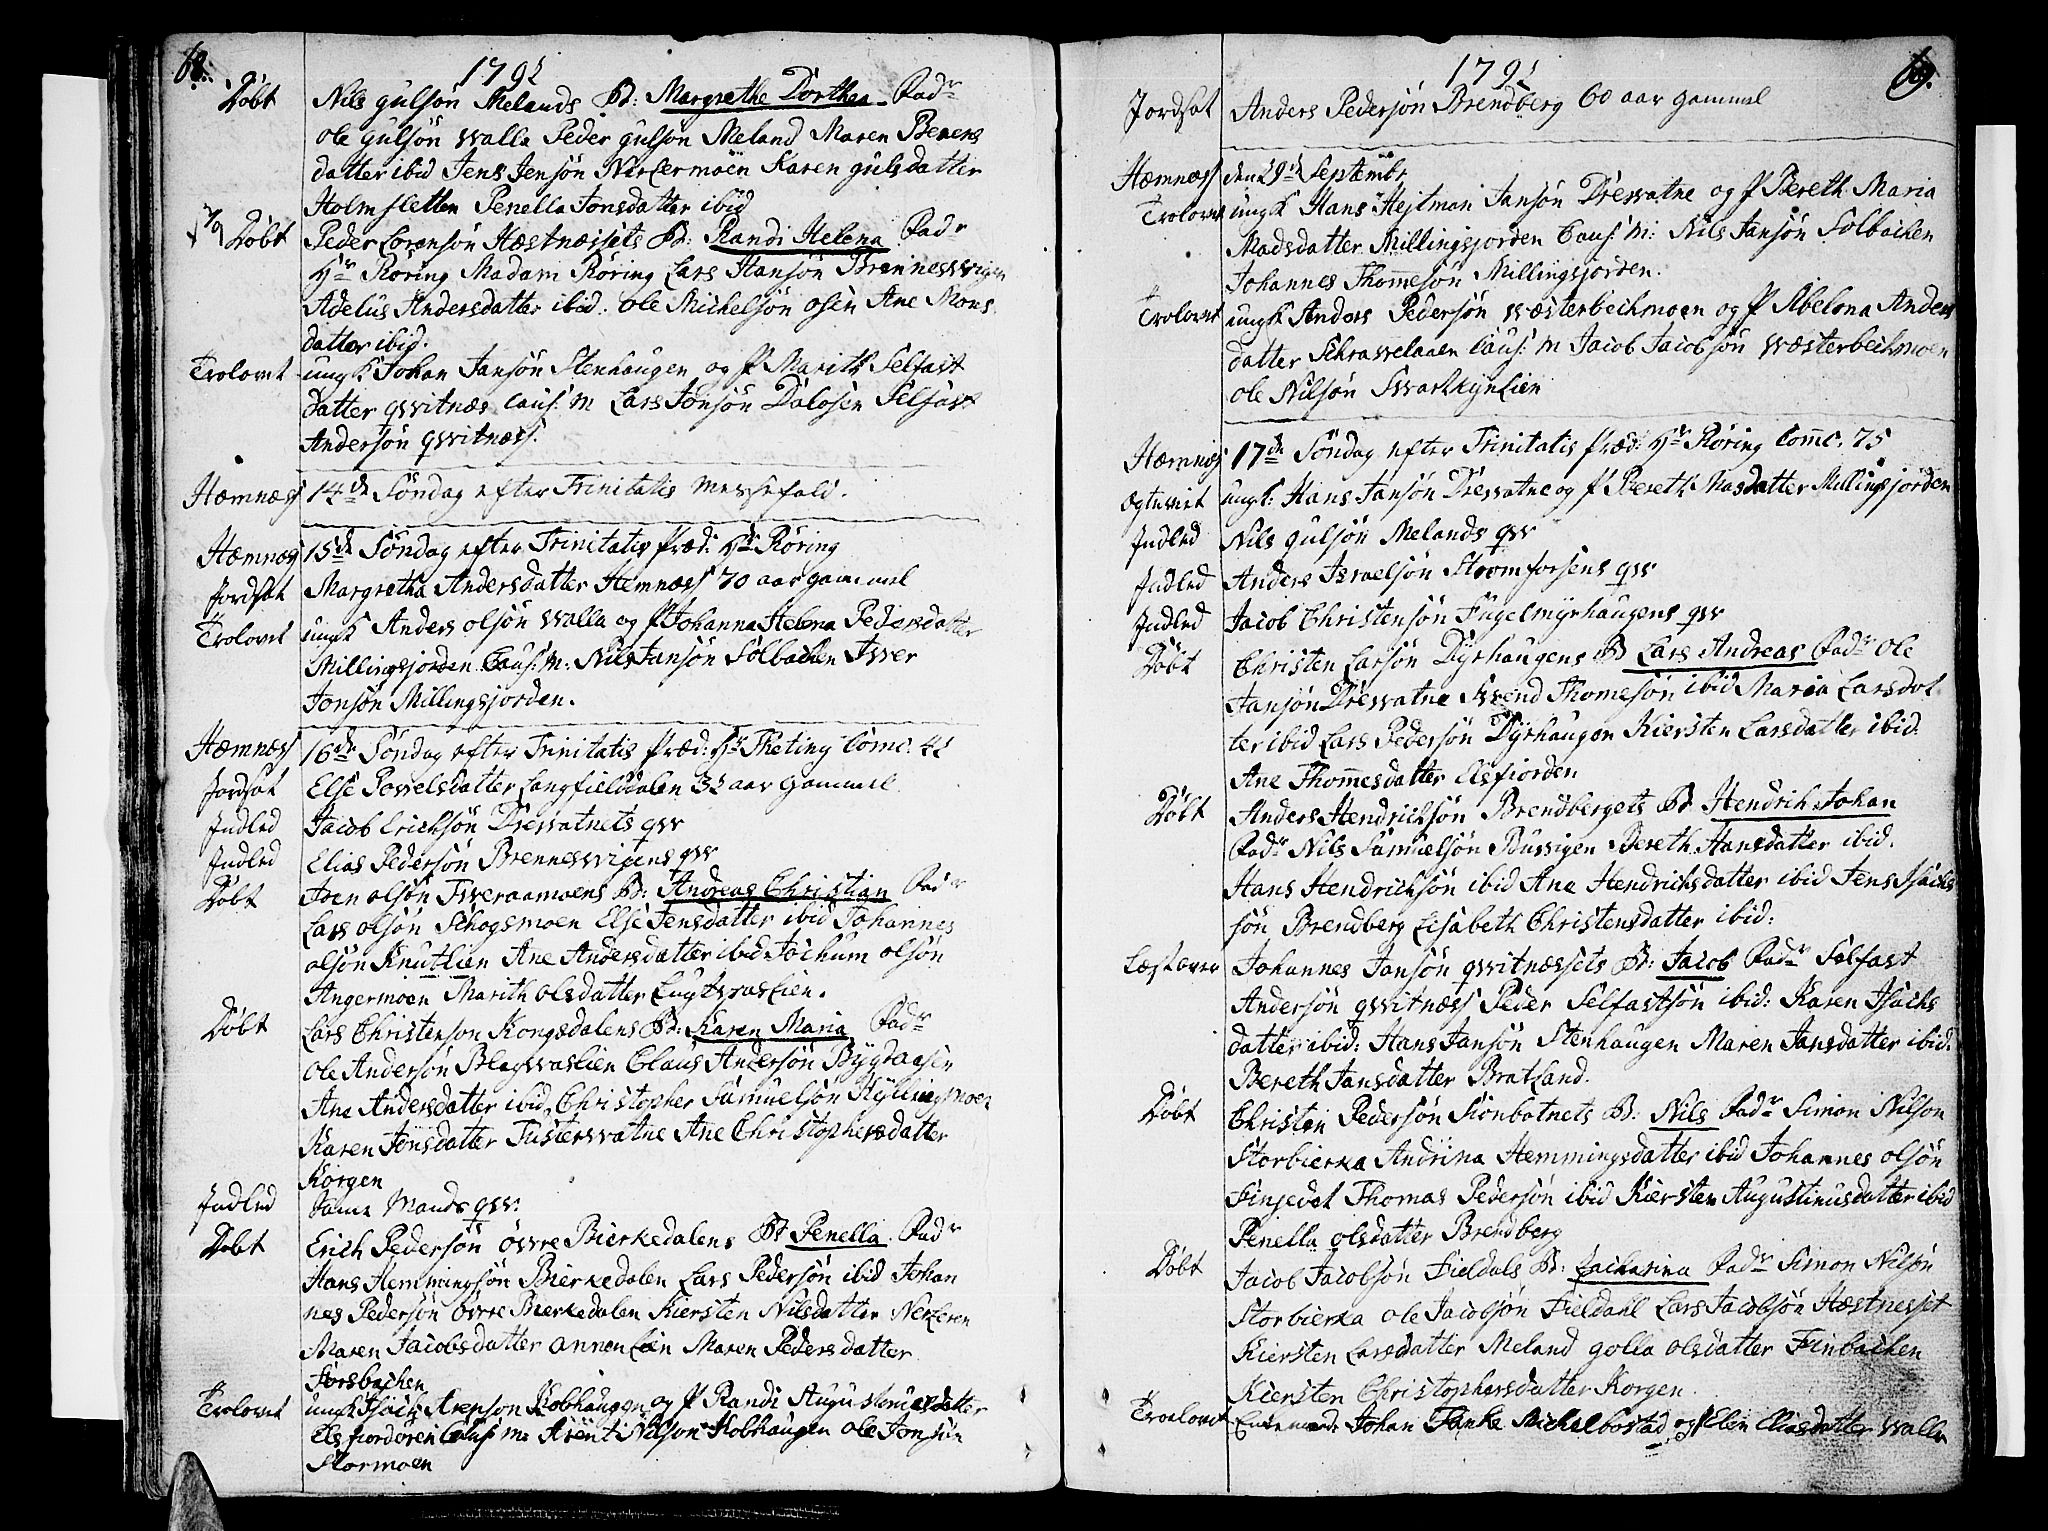 68.
1792
Døbt Nils gulsøn Melands B: Margrethe Dorthea Fadr
ole gulsøn walla Peder gulson Meland Maren Benens
datter ibid Jens Jensøn Nerlermoen Karen gulsdatter
Holmsletten Penella Jonsdatter ibid
Døbt Peder Lorensøn Hæstnæssets B: Randi Helena Fadr
Hr Røring Madam Røring Lars Hansøn Brenneswigen
Adelus Andersdatter ibid. ole Michelsøn osen Ane Mons
datter ibid.
Trolovet ungk Johan Jansøn Stenhaugen og P Marith Selfast
datter qwitnæs Caus: m Lars Jonsøn Dalosen Selfast
Andersøn qwitnæss.
Hæmnæss 14de Søndag efter Trinitatis Messefald.
Hæmnæs 15de Søndag efter Trinitatis Præd: Hr Røring
Jordsat Margretha Andersdatter Hemnæss 70 aar gammel
Trolovet ungk Anders olsøn walla og P Johanna Helena Pedersdatter
Millingsjorden. Caus: m: Nils Jansøn Solbachen Iwer
Jonsøn Millingsjorden.
Hæmnæss 16de Søndag efter Trinitatis Præd: Hr Theting Comc. 42
Jordsat Else Powelsdatter Langfieldalen 32 aar gammel
Indled Jacob Erichsøn Drewatnets qw
Indled Elias Pedersøn Brenneswigens qw
Døbt Joen olsøn Tweraamoens B: Andreas Christian Fadr
Lars olsøn Schogsmoen Else Jensdatter ibid Johannes
olsøn Knutlien Ane Andersdatter ibid Jochum olsøn
Angermoen Marith olsdatter Lugtwaslien.
Døbt Lars Christenson Kongsdalens B: Karen Maria Fadr
ole Andersøn Blegwaslien Claus Andersøn Bygdaasen
Ane Andersdatter ibid Christopher Samuelsøn Kyllingmoen
Karen Jonsdatter Tusterwatne Ane Christophersdatter
Korgen
Indled Same Mands qw.
Døbt Erich Pedersøn øwre Bierkedalens B: Penella Fadr
Hans Hemmingsøn Bierkedalen Lars Pedersøn ibid Johan
nes Pedersøn øvre Bierkedalen Kiersten Nilsdatter Nerleren
Maren Jacobsdatter annonlien Maren Pedersdatter
Forsbachen
Trolovet ungk Isach Arenson Kobhaugen og P Randi Augustinusdatter
Elsfiordøren Caus: m: Arent Nilson Kobhaugen ole Jonsøn
Stormoen
69.
1792
Jordsat Anders Pedersøn Brendberg 60 aar gammel
Hæmnæss den 29de Septembr
Trolovet ungk Hans Hejtman Jansøn Drewatne og P Bereth Maria
Madsdatter Millingsjorden Caus: m: Nils Jansøn Solbachen
Johannes Thomesøn Millingsjorden.
Trolovet ungk Anders Pedersøn wæsterbechmoen og P Abelona Anders
datter Schrawelaaen Caus: m Jacob Jacobsøn wæsterbechmoen
ole Nilsøn Swarthynlien
Hæmnæs 17de Søndag efter Trinitatis Præd: Hr Røring Comc. 75
Egteviet ungk: Hans Jansøn Drewatne og P Bereth Masdatter Millingsjorden
Indled Nils gulsøn Melands qw
Indled Anders Israelsøn Stromforsens qw
Indled Jacob Christensøn Fugelmyrhaugens qw
Døbt Christen Larsøn Dyrhaugens B Lars Andreas Fadr Ole
Jansøn Drewatne Swend Thomesøn ibid Maria Larsdat
ter ibid Lars Pedersøn Dyrhaugen Kiersten Larsdatter ibid.
Ane Thomesdatter Elsfiorden
Døbt Anders Hendrichsøn Brendbergets B: Hendrich Johan
Fadr Nils Samuelsøn Buswigen Bereth Hansdatter ibid.
Hans Hendrichsøn ibid Ane Hendrichsdatter ibid Jens Isachs
søn Brendberg Elisabeth Christensdatter ibid:
Læst over Johannes Jansøn qwitnæssets B: Jacob Fadr Selfast
Andersøn qwitnæss Peder Selfastsøn ibid: Karen Isachs
datter ibid: Hans Jansøn Stenhaugen Maren Jansdatter ibid.
Bereth Jansdatter Bratland.
Døbt Christen Pedersøn Sionbotnets B: Nils Fadr Simon Nilson
Storbierka Andrina Hemmingsdatter ibid Johannes olsøn
Finsedet Thomas Pedersøn ibid Kiersten Augustinusdatter ibid
Penella olsdatter Brendberg
Døbt Jacob Jacobsøn Fieldals B: Zacharina Fadr Simon Nilsøn
Storbierka ole Jacobsøn Fieldahl Lars Jacobsøn Hæstnesset
Kiersten Larsdatter Meland golla olsdatter Finbachen
Kiersten Christophersdatter Korgen.
Troelovet Enkemand Johan Tanke Michelbostad og P Elen Eliasdatter walla